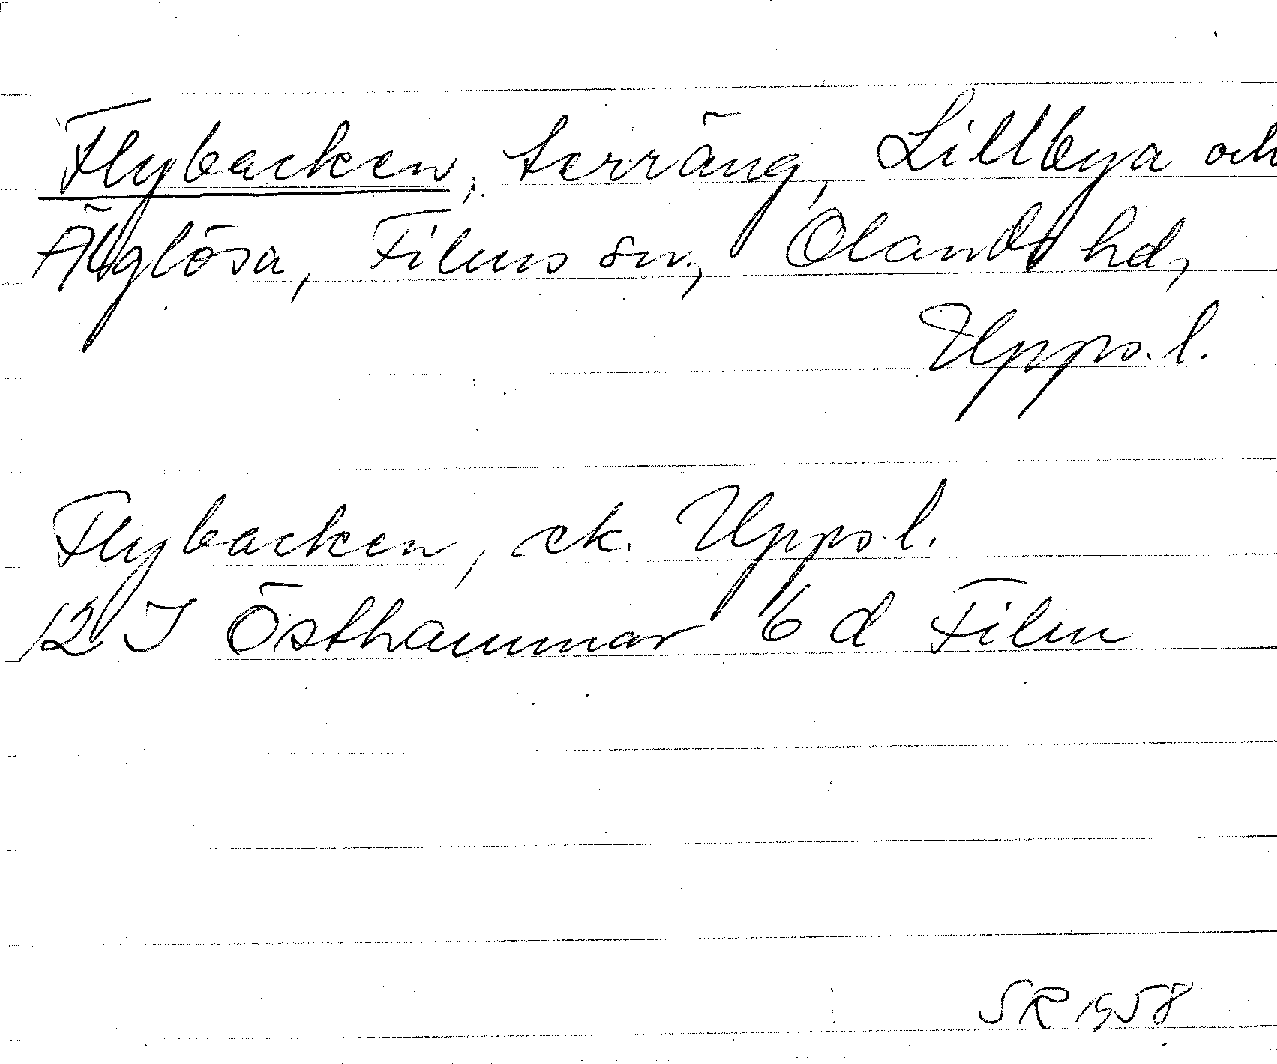 Flybacken, terräng, Lillbya och
Älglösa, Films sn, Olands hd,
Upps.l.
Flybacken, ek. Upps.l.
12 I Östhammar 6 d Film
SR 1958